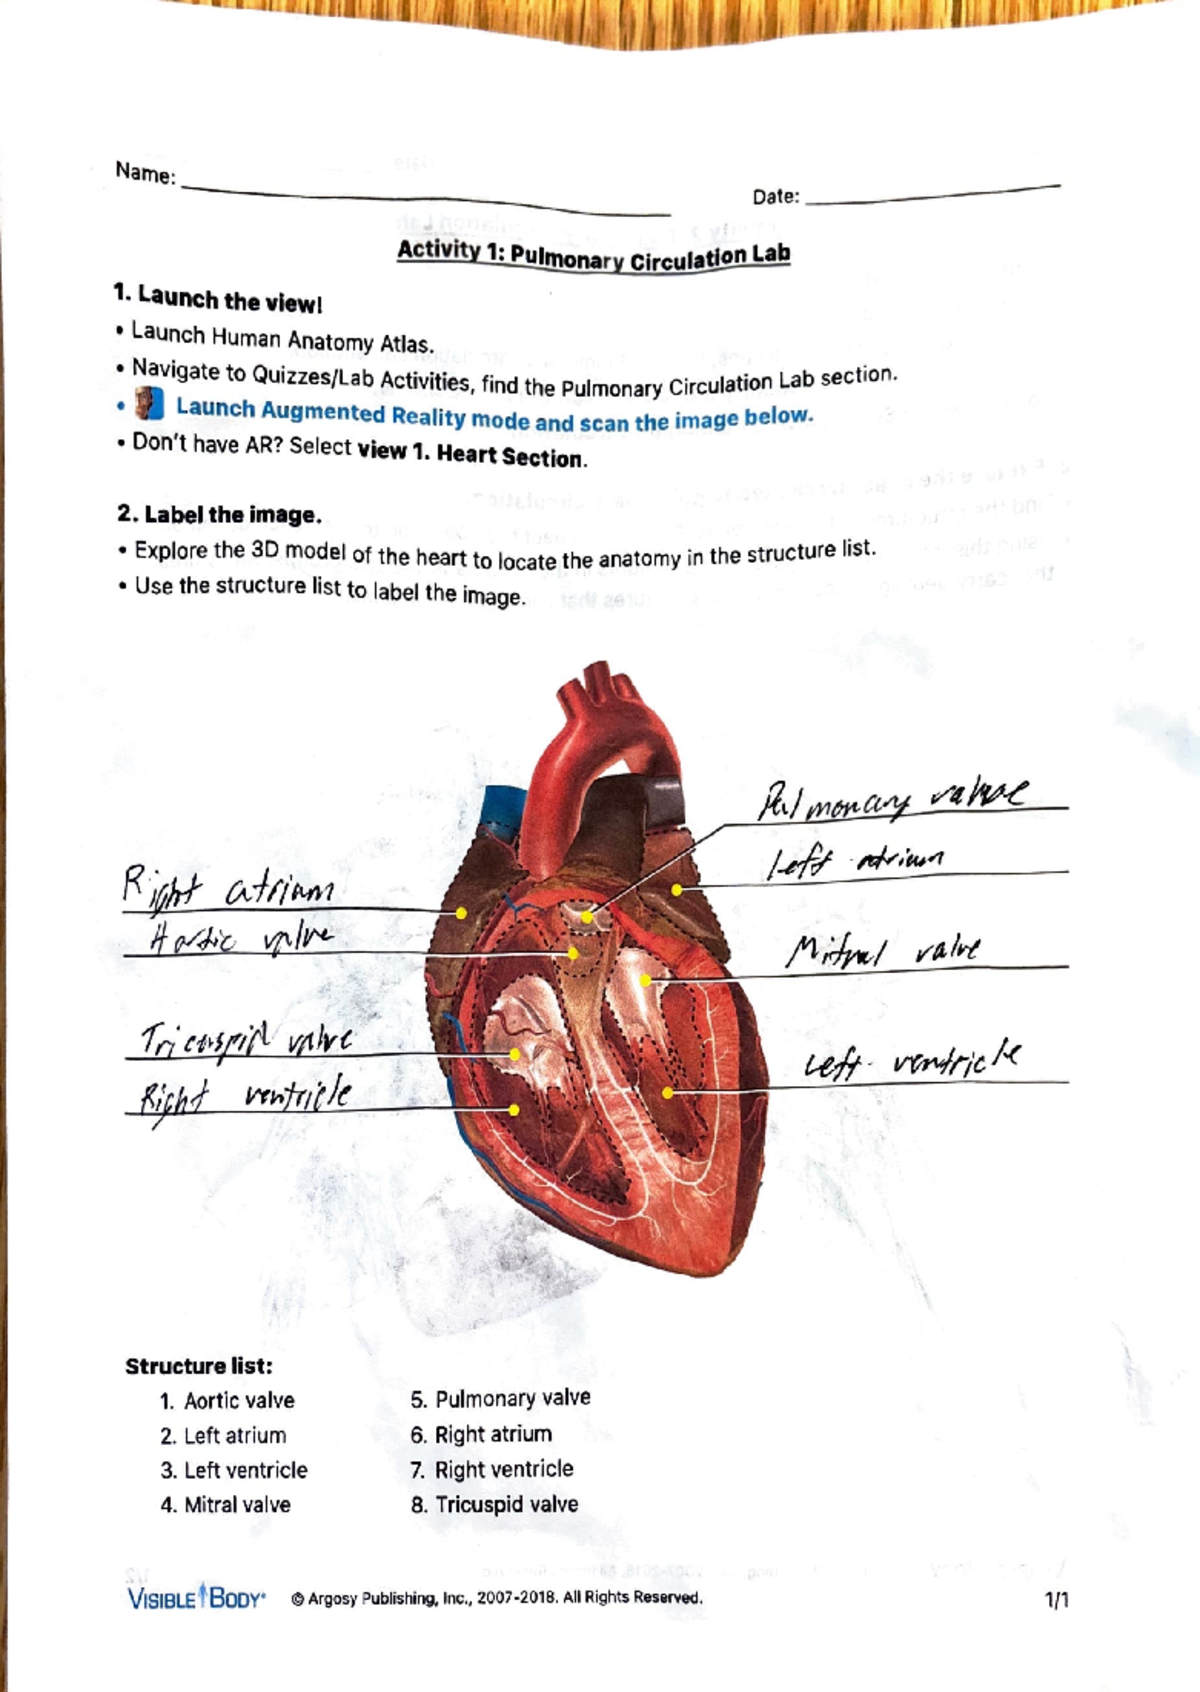 Name:
Date:
Activity 1: Pulmonary Circulation Lab
1. Launch the view!
• Launch Human Anatomy Atlas.
• Navigate to Quizzes/Lab Activities, find the Pulmonary Circulation Lab section.
• Launch Augmented Reality mode and scan the image below.
• Don't have AR? Select view 1. Heart Section.
2. Label the image.
• Explore the 3D model of the heart to locate the anatomy in the structure list.
• Use the structure list to label the image.
Pulmonary valve
Left atrium
Right atrium
Aortic valve
Mitral valve
Tricuspid valve
Left ventricle
Right ventricle
Structure list:
1. Aortic valve
2. Left atrium
3. Left ventricle
4. Mitral valve
5. Pulmonary valve
6. Right atrium
7. Right ventricle
8. Tricuspid valve
VISIBLE BODY® © Argosy Publishing, Inc., 2007-2018. All Rights Reserved.
1/1